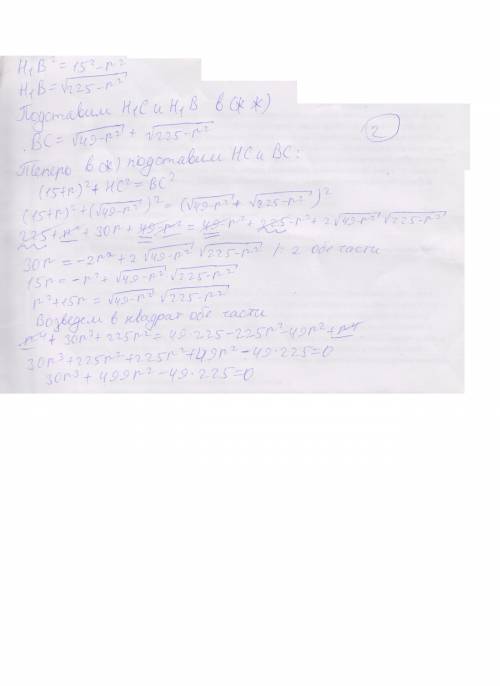 H₁B² = 15² - r²
H₁B = √(225 - r²)
Подставим H₁C и H₁B в (**)
BC = √(49 - r²) + √(225 - r²)
2
Теперь в (*) подставим HC и BC:
(15+r)² + HC² = BC²
(15+r)² + (√(49-r²))² = (√(49-r²) + √(225-r²))²
225 + r² + 30r + 49 - r² = 49 - r² + 225 - r² + 2√(49-r²) √(225-r²)
30r = -2r² + 2√(49-r²) √(225-r²) /: 2 обе части
15r = -r² + √(49-r²) √(225-r²)
r² + 15r = √(49-r²) √(225-r²)
Возведем в квадрат обе части
r⁴ + 30r³ + 225r² = 49·225 - 225r² - 49r² + r⁴
30r³ + 225r² + 225r² + 49r² - 49·225 = 0
30r³ + 499r² - 49·225 = 0